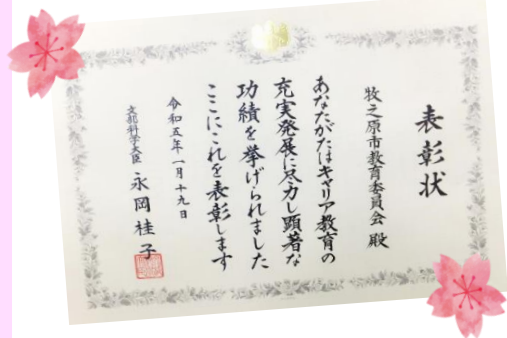 表彰状
牧之原市教育委員会 殿
あなたがたはキャリア教育の
充実発展に尽力し顕著な
功績を挙げられました
ここにこれを表彰します
令和五年一月十九日
文部科学大臣 永岡桂子